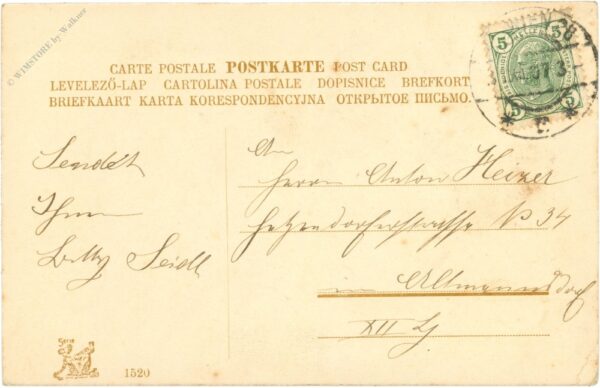 © WIMSTORE by Walkner
CARTE POSTALE POSTKARTE POST CARD
LEVELEZŐ-LAP CARTOLINA POSTALE DOPISNICE BREFKORT
BRIEFKAART KARTA KORESPONDENCYJNA ОТКРЫТОЕ ПИСЬМО.
5 5
WIEN
07
5 5
* *
Sendet
Ihnen
Betty Seidl
An
Herrn Anton Heizer
Hetzendorferstrasse N 34
in Altmannsdorf
XII
1520